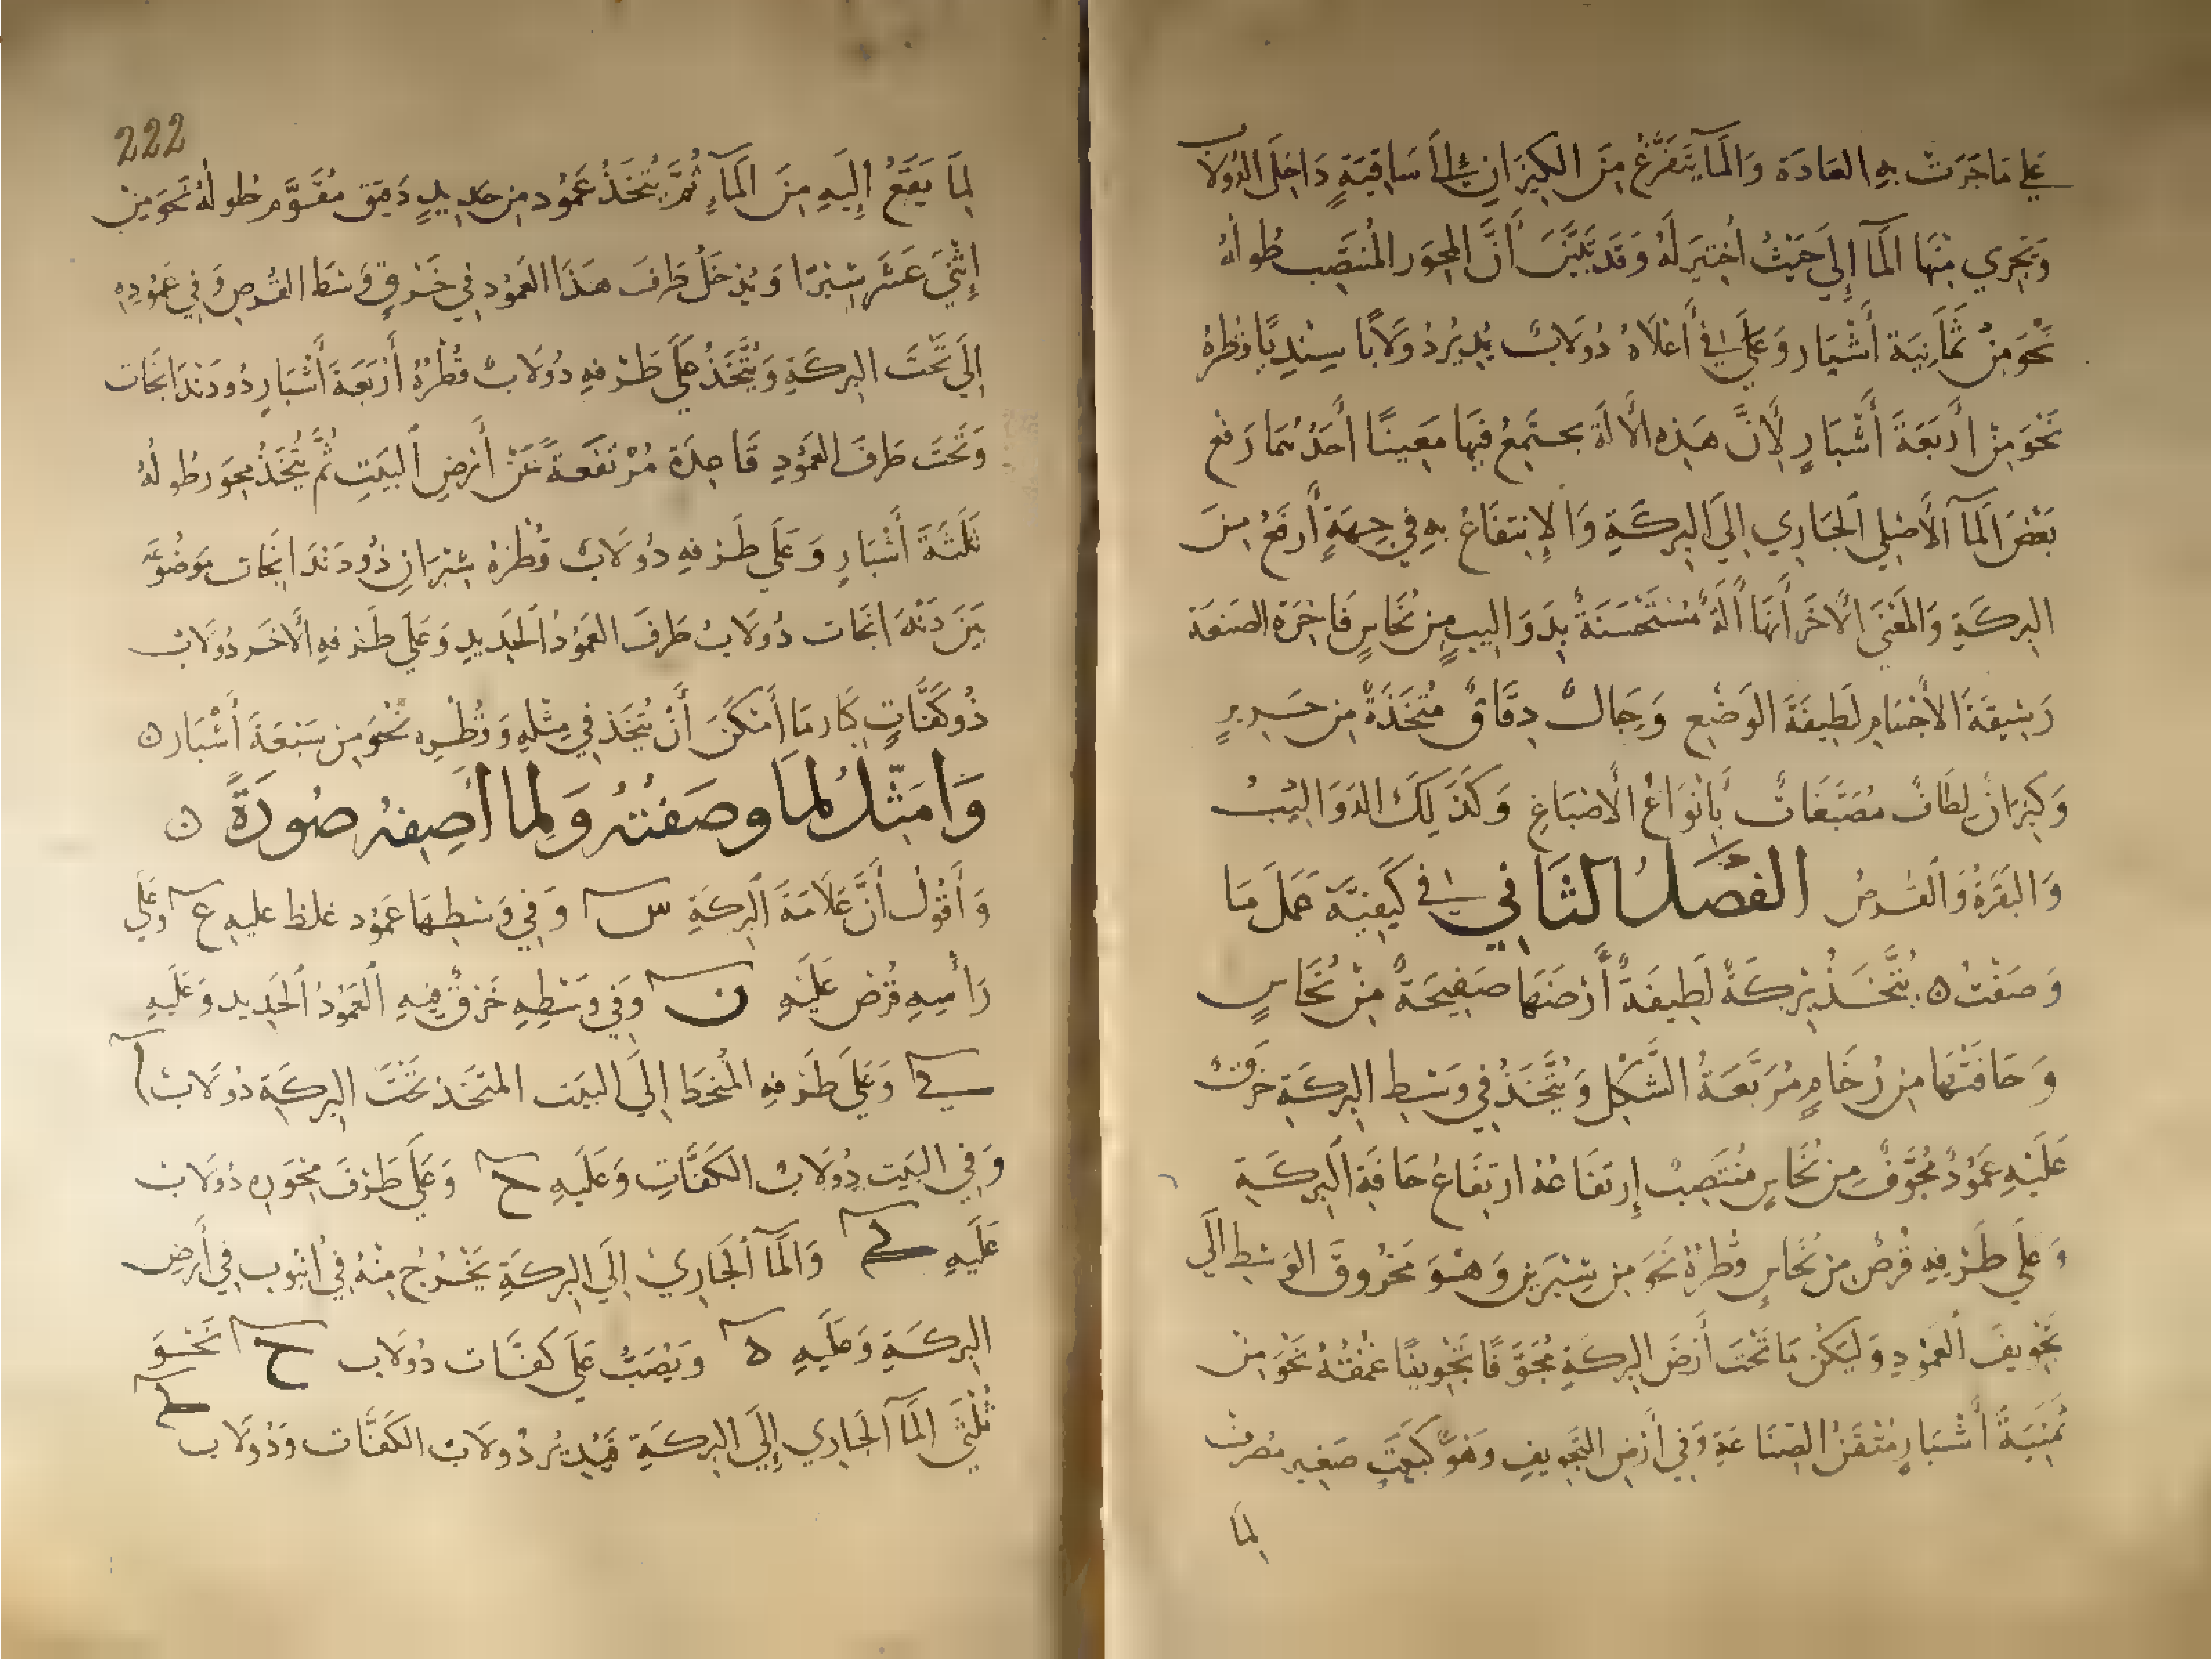 علي ما جَرَتْ بِهِ العَادَة وَالمَآ يَتَفَرَّغُ مِنَ الكِيزَانِ إلَى سَاقِيَةٍ دَاخِلَ الدُولَاب
وَيَجْرِي مِنْهَا المَآ إِلَيَ حَيْثُ اخْتِيَر لَهُ وَقَد تَبَيَّنَ أَنَّ المِحوَر المُنتَصِب طُولهُ
نَحْوَ مِنْ ثَمَانِيَة أَشْبَار وَعَلَي أَعْلَاهُ دُولَابٌ يُدِيُر دُولَابًا سِنْدِيًا وَقُطْرهُ
نَحْوَ مِنْ أَرْبَعَةَ أَشْبَارٍ لِأَنَّ هَذِهِ الأَلَةَ يجتَمِعُ فِيهَا مَعنيَيَنَ أَحَدُهُمَا رَفعِ
بَعْضَ المَآ الأَصْلِي الجَارِي إِلَيَ البِركَةِ وَالإِنتِفَاعُ بِهِ فِي جِهَةٍ أَرفَعُ مِنَ
البِركَةِ وَالمَعْنَيَ الأخَر أَنهَا أَلَةٌ مُسْتَحْسَنَةٌ بِدَوَالِيبٍ مِن نُحَاسٍ فَاخِرَة الصنعَة
رَشِيقَةَ الأَجْسَامِ لَطِيفَةَ الوَضْعِ وَحِبَالٌ دِقَاقٌ مُتخَذَةٌ مِن حَرِيرٍ
وَكِيزَانٌ لِطَافٌ مُصَبَّغَاتٌ بِأَنْوَاعُ الأَصْبَاغِ وَكَذَلِكَ الدَوَالِيْبُ
وَالبَقَرَةُ وَالقُرصُ الفَصْلُ الثَانِي فِي كَيْفِيَّة عَمَلَ مَا
وَصَفْتُ ٥ يُتَّخَذُ بِرْكَةٌ لَطِيفَةٌ أَرْضَهَا صَفِيحَةٌ مِنْ نُحَاسٍ
وَحَافَتْهَا مِن رُخَامٍ مُرَبَّعَةُ الشَّكْلِ وَيُتَّخَذُ فِي وَسْطِ البِركَةِ خَرقٌ
عَلَيْهِ عَمُودٌ مُجَوَّفٌ مِن نُحَاسٍ مُنْتَصِبْ إِرتفَاعُهُ ارتِفَاعُ حَافَةِ البِركَةِ
وَعَلَي طَرْفِهِ قُرصٌ مِن نُحَاسٍ قُطْرُهُ نَحوَ مِن شِبْرَينِ وَهْوَ مَخْرُوقَ الوَسْطِ إلَي
تَجْوِيفَ العَمُودِ وَليَكُن مَا تَحْتَ أَرْضَ البِركَةِ مُجَوَّفًا تَجْوِيفًا عُمْقُهُ نَحْوَ مِنْ
ثَمَنِيَةَ أَشْبَارٍ مُتْقَنُ الصِنَاعَةِ وَفِي أَرْضِ التَجْوِيفِ وَهْوَ كَبَيْتٍ صَغِيرٍ مصرفٌ
لِمَا
222
لِمَا يَقَعُ إِلَيهِ مِنَ المَآءِ ثُمَّ يُتخَذُ عَمُود مِن حَدِيدٍ دَقِيق مُقَوَّم طُولهُ نَحوَ مِنْ
إثْنَيَ عَشَرَ شِبْرًا وَيُدْخَلُ طَرفَ هَذَا العَمُودِ فِي خَرْقٍ وَسْط القُرصِ وَفِي عَمُودِهِ
إِلَي تَحْتَ البِركَةِ وَيُتَّخَذُ عَلَي طَرْفِهِ دُولَابٌ قُطْرُهُ أَرْبَعَةَ أَشْبَارٍ ذُو دَنْدَانجَات
وَتَحْتَ طَرفَ العَمُودِ قَاعِدَة مُرْتفِعَةَ عَنْ أَرْضِ البَيتِ ثُمَّ يُتَّخَذُ مِحوَر طُولهُ
ثَلَثَةَ أَشْبَارٍ وَعَلَي طَرْفِهِ دُولَابٌ قُطْرَهُ شِبْرَانِ ذُو دَنَدانجَات مَوضُوعَةٌ
بَيْنَ دَنْدَانجَات دُولَابْ طَرفَ العَمُودُ الحَدِيدِ وَعَلَي طَرْفِهِ الأَخَر دُولَابْ
ذُو كَفَّاتٍ كِبَار مَا أَمْكَنَ أَنْ يُتَّخَذ فِي مِثْلِهِ وَقُطْرهِ نَحْوَ مِن سَبْعَةَ أَشْبَار ٥
وَامَثِّلُ لِمَا وصَفْتُهُ وَلِما أَصِفهُ صُورَةً ٥
وَأَقُوْل أَنَّ عَلَامَةَ البِركَةِ س وَفِي وَسْطِهَا عَمُود غلظ عليهِ ع وَعَلَي
رَأسِهِ قُرْص عَلَيْهِ ن وَفِي وَسْطِهِ خَرْقٌ فِيْهِ العَمُودُ الحَدِيد وَعَلَيهِ
ف وَعَلَي طَرْفِهِ المُنْحَط إلَيَ البَيْت المتخَذ تَحْتَ البِركَةِ دُولَابْ ا
وَفِي البَيْت دُولَابْ الكَفَّاتِ وَعَلَيهِ ح وَعَلَي طَرْفَ مِحْوَرِهِ دُولَابْ
عَلَيهِ ط وَالمَآ الجَارِي إلَيَ البِركَةِ يَخْرُجُ مِنْهُ فِي أنبُوب فِي أَرضِ
البِركَةِ وَعَلَيهِ ه وَيَصُبُّ عَلَي كَفَّات دُولَاب ح نَحْوَ
ثُلثَيَ المَآ الجَارِي إِلَيَ البِركَةِ فَيُدِيرُ دُولَابْ الكَفَّات وَدُولَاب ط